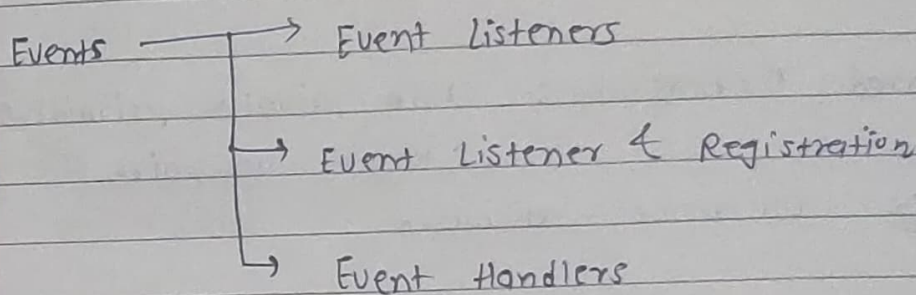 Events → Event Listeners
→ Event Listener & Registration
→ Event Handlers